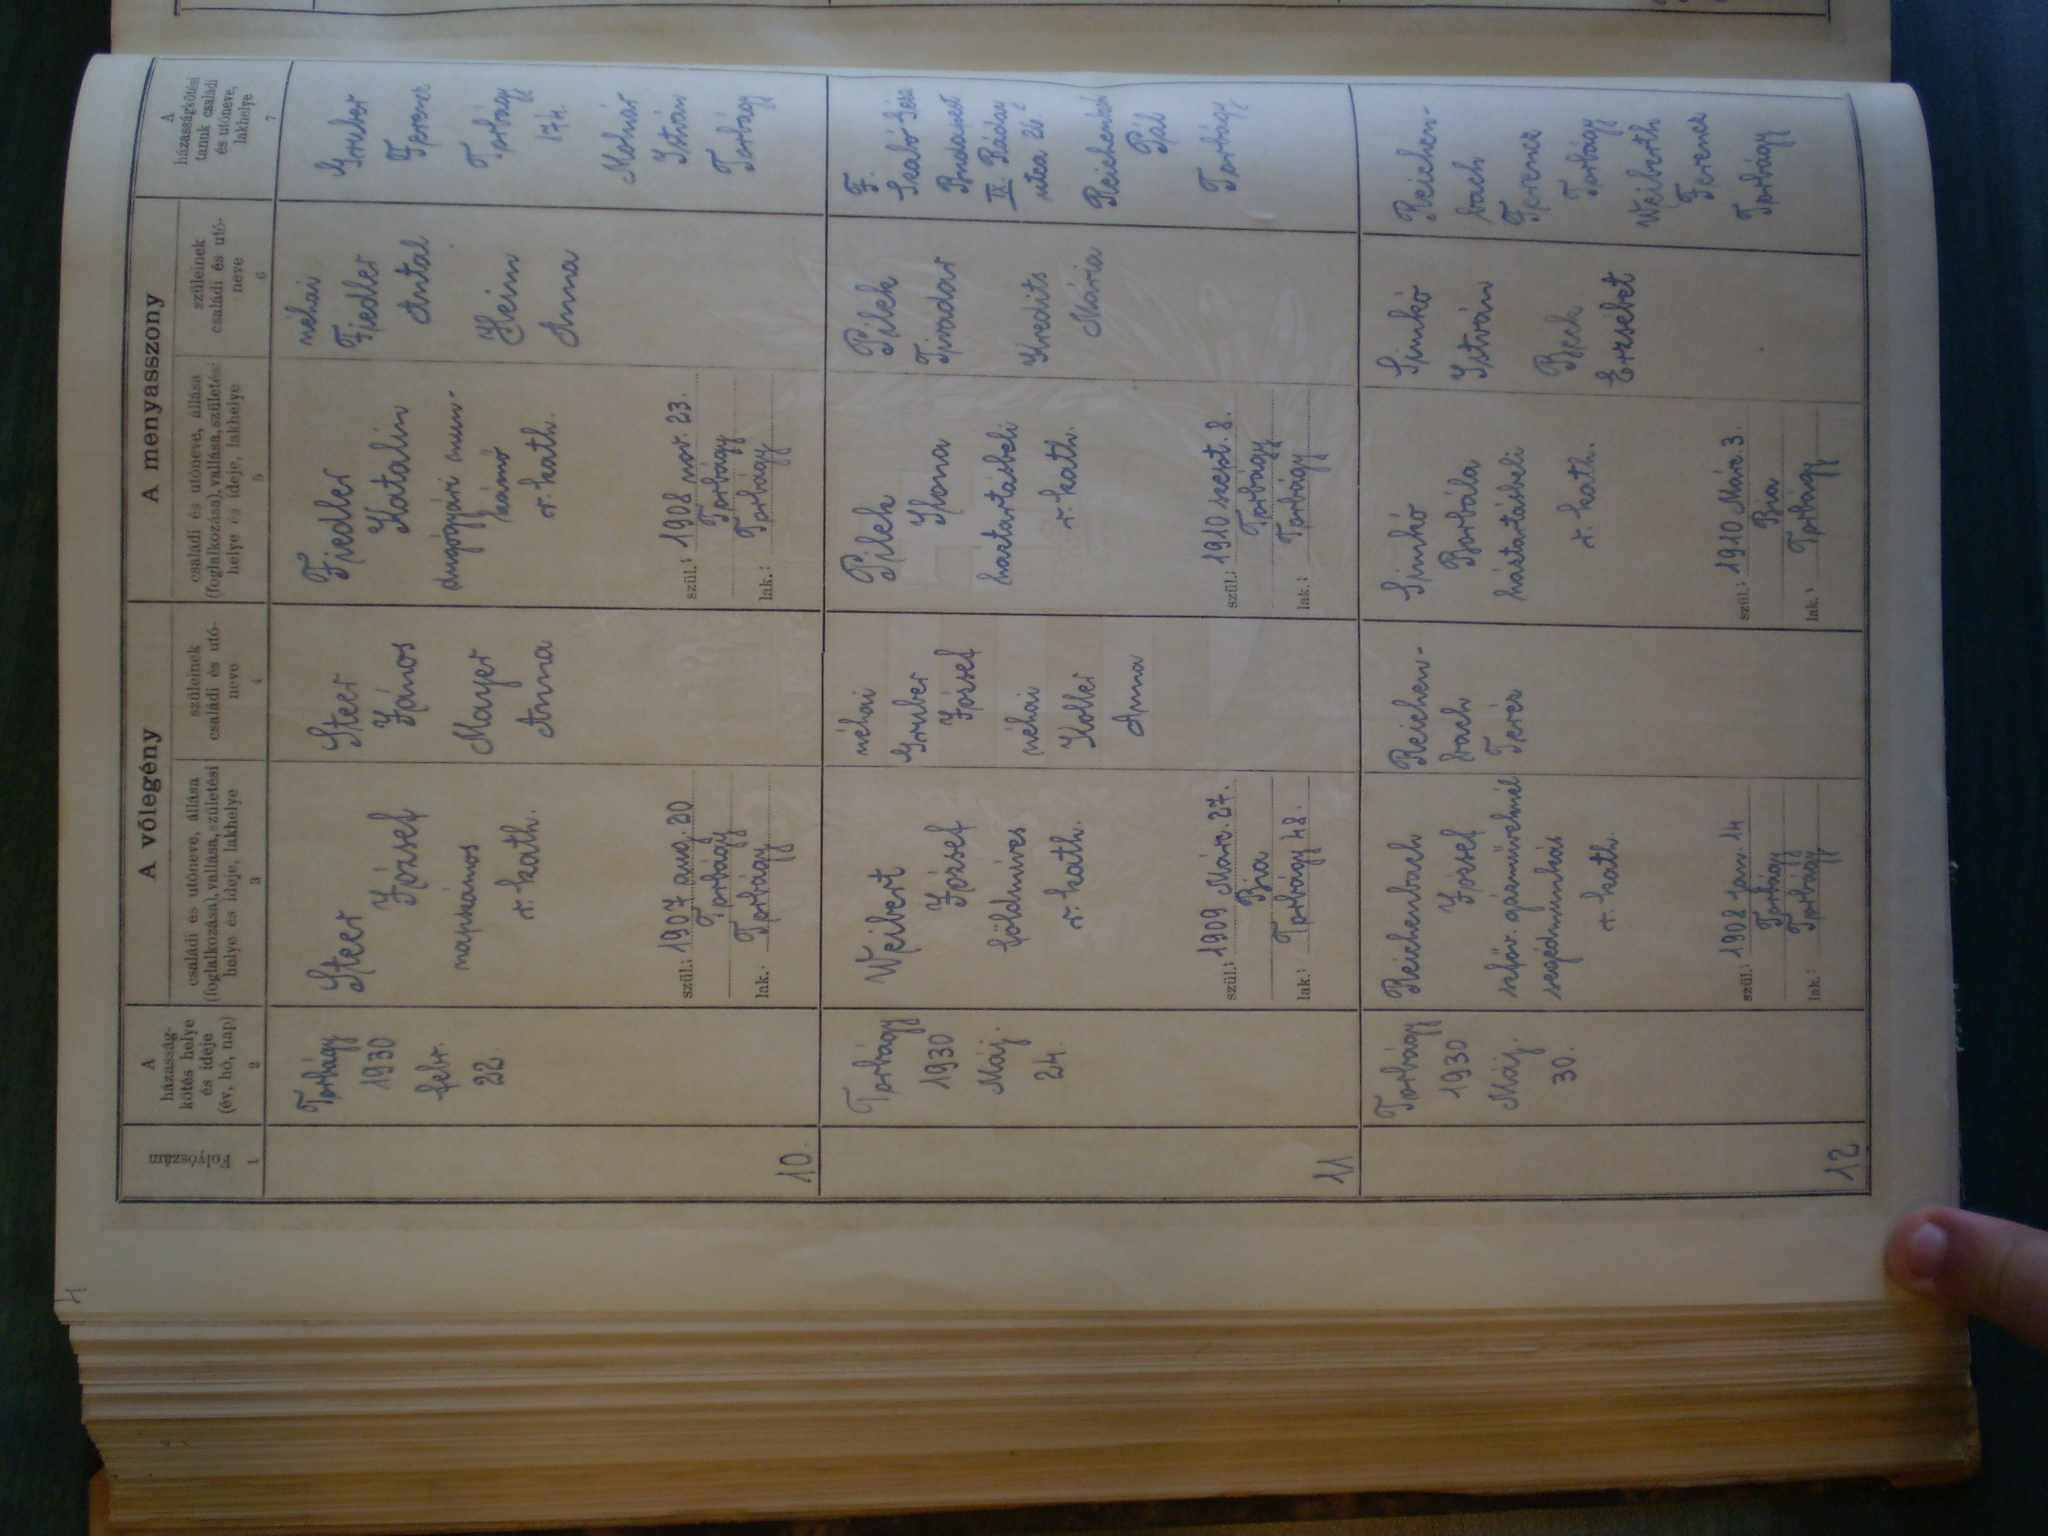 4
A vőlegény
A menyasszony
Folyószám
A
házasság-
kötés helye
és ideje
(év, hó, nap)
családi és utóneve, állása
(foglalkozása), vallása, születési
helye és ideje, lakhelye
szüleinek
családi és utó-
neve
családi és utóneve, állása
(foglalkozása), vallása, születési
helye és ideje, lakhelye
szüleinek
családi és utó-
neve
A
házasságkötési
tanuk családi
és utóneve,
lakhelye
1
2
3
4
5
6
7
10.
Torbágy
1930
febr.
22.
Steer
József
napszámos
r. kath.
szül.: 1907 aug. 20
Torbágy
lak.: Torbágy
Steer
János
Mayer
Anna
Fiedler
Katalin
dugógyári mun-
kásnő
r. kath.
szül.: 1908 nov. 23.
Torbágy
lak.: Torbágy
néhai
Fiedler
Antal
Heim
Anna
Gruber
Ferenc
Torbágy
Molnár
István
Torbágy
11
Torbágy
1930
Máj.
24.
Weibert
József
földmíves
r. kath.
szül.: 1909 Márc. 27.
Bia
lak.: Torbágy 48.
néhai
Gruber
József
néhai
Koller
Anna
Pilek
Ilona
háztartásbeli
r. kath.
szül.: 1910 szept. 8.
Torbágy
lak.: Torbágy
Pilek
Tivadar
Kredits
Mária
F.
Szabó Géza
Budapest
IX. Ráday
utca 26.
Reichenbach
Pál
Torbágy
12
Torbágy
1930
Máj.
30.
Reichenbach
József
székesfőv. gázműveknél
segédmunkás
r. kath.
szül.: 1908 jan. 14
Torbágy
lak.: Torbágy
Reichen-
bach
Teréz
Sinkó
Borbála
háztartásbeli
r. kath.
szül.: 1910 Márc. 3.
Bia
lak.: Torbágy
Sinkó
István
Beck
Erzsébet
Reichen-
bach
Ferenc
Torbágy
Weiberth
Ferenc
Torbágy